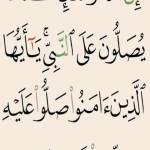 يُصَلُّونَ عَلَى ٱلنَّبِيِّۚ يَٰٓأَيُّهَا
ٱلَّذِينَ ءَامَنُواْ صَلُّواْ عَلَيۡهِ